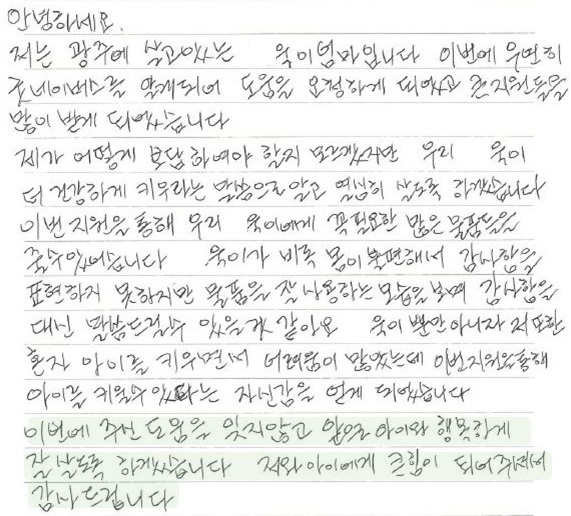 안녕하세요.
저는 광주에 살고있는 욱이엄마입니다 이번에 우연히
굿네이버스를 알게되어 도움을 요청하게 되었고 큰지원들을
많이 받게 되었습니다
제가 어떻게 보답하여야 할지 모르겠지만 우리 욱이
더 건강하게 키우라는 말씀으로 알고 열심히 살도록 하겠습니다
이번 지원을 통해 우리 욱이에게 꼭필요한 많은 물품들을
줄수있었습니다 욱이가 비록 몸이불편해서 감사함을
표현하지 못하지만 물품을 잘 사용하는모습을보며 감사함을
대신 말씀드릴수 있을거 같아요 욱이 뿐만아니라 저 또한
혼자 아이를 키우면서 어려움이 많았는데 이번지원을통해
아이를 키울수있다는 자신감을 얻게 되었습니다
이번에 주신 도움을 잊지않고 앞으로 아이와 행복하게
잘 살도록 하겠습니다 저와아이에게 큰힘이 되어주셔서
감사드립니다